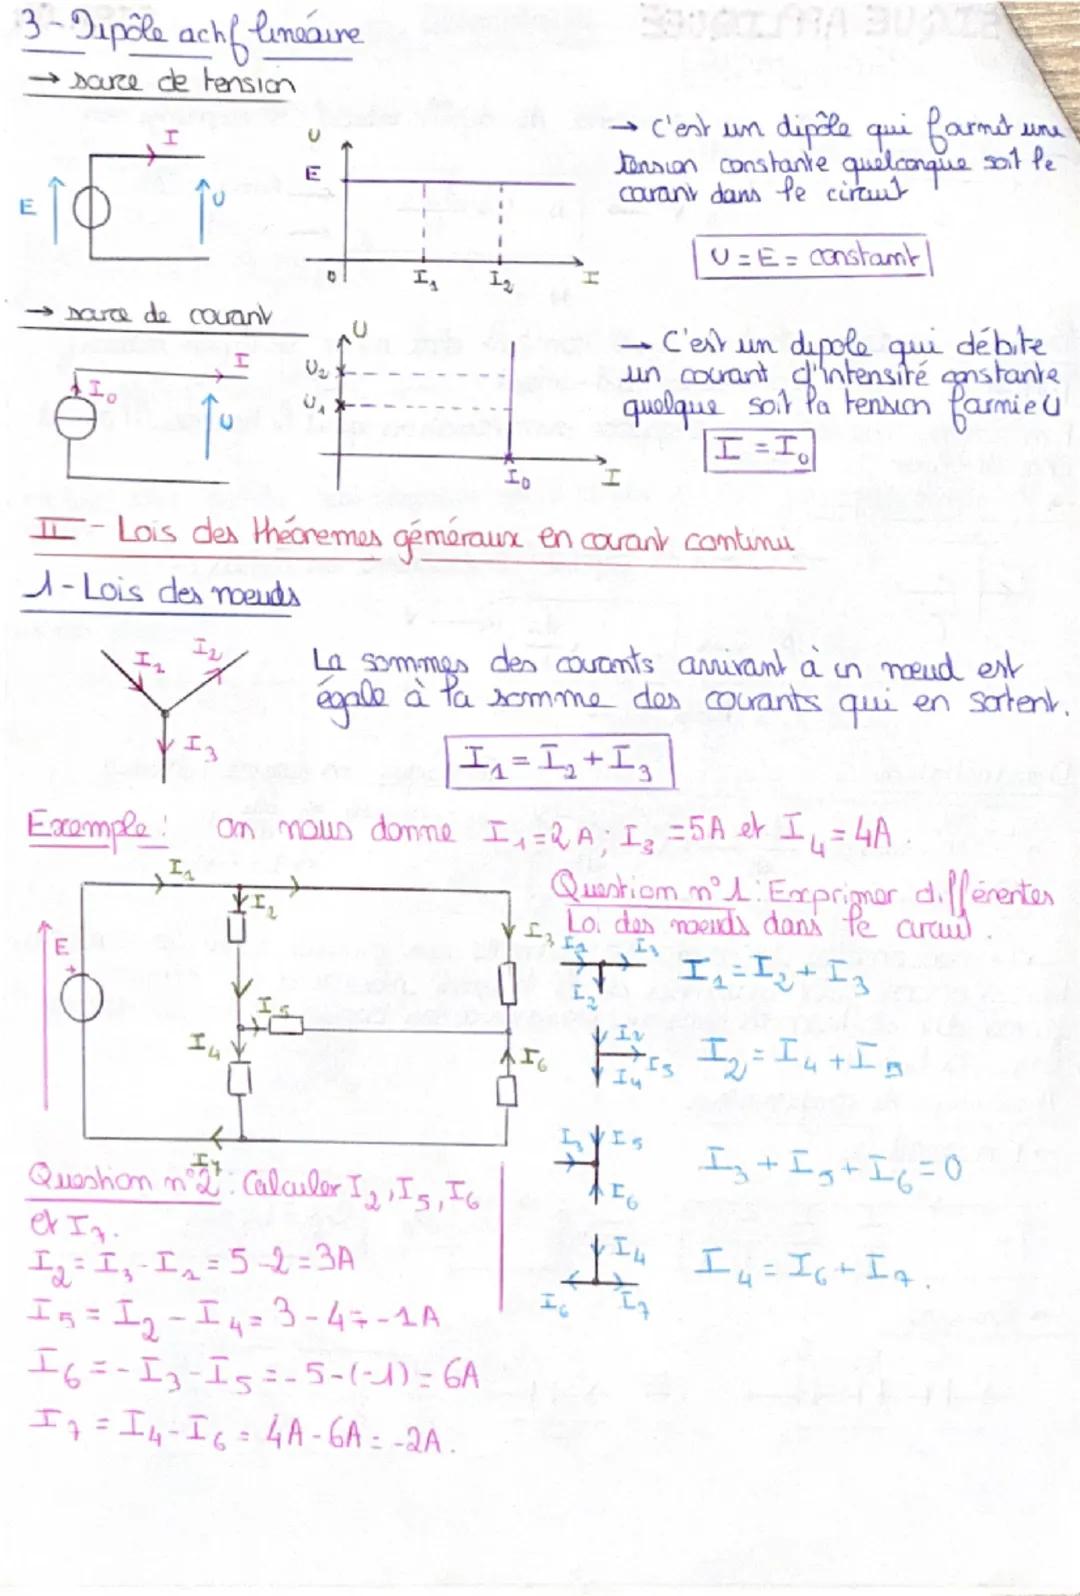 3 - Dipôle actif linéaire
→ source de tension
I
E
U
U
E
0
I₁
I₂
I
→ C'est un dipôle qui fournit une
tension constante quelconque soit le
courant dans le circuit
U = E = constant
→ source de courant
I
I₀
U
U
U₂
U₁
I₀
I
→ C'est un dipole qui débite
un courant d'intensité constante
quelque soit la tension fournie U
I = I₀
II - Lois des théoremes généraux en courant continu
1 - Lois des noeuds
I₁
I₂
I₃
La sommes des courants arrivant à un noeud est
égale à la somme des courants qui en sortent.
I₁ = I₂ + I₃
Exemple : on nous donne I₁ = 2A, I₃ = 5A et I₄ = 4A
I₁
I₂
I₃
E
+
I₅
I₄
I₆
I₇
Question n°1 : Exprimer différentes
Loi des noeuds dans le circuit.
I₁ I₃
I₂
I₁ = I₂ + I₃
I₂
I₅
I₄
I₂ = I₄ + I₅
I₃ I₅
I₆
I₃ + I₅ + I₆ = 0
I₄
I₆ I₇
I₄ = I₆ + I₇.
Question n°2 : Calculer I₂, I₅, I₆
et I₇.
I₂ = I₃ - I₁ = 5 - 2 = 3A
I₅ = I₂ - I₄ = 3 - 4 = -1A
I₆ = - I₃ - I₅ = - 5 - (-1) = 6A
I₇ = I₄ - I₆ = 4A - 6A = -2A.